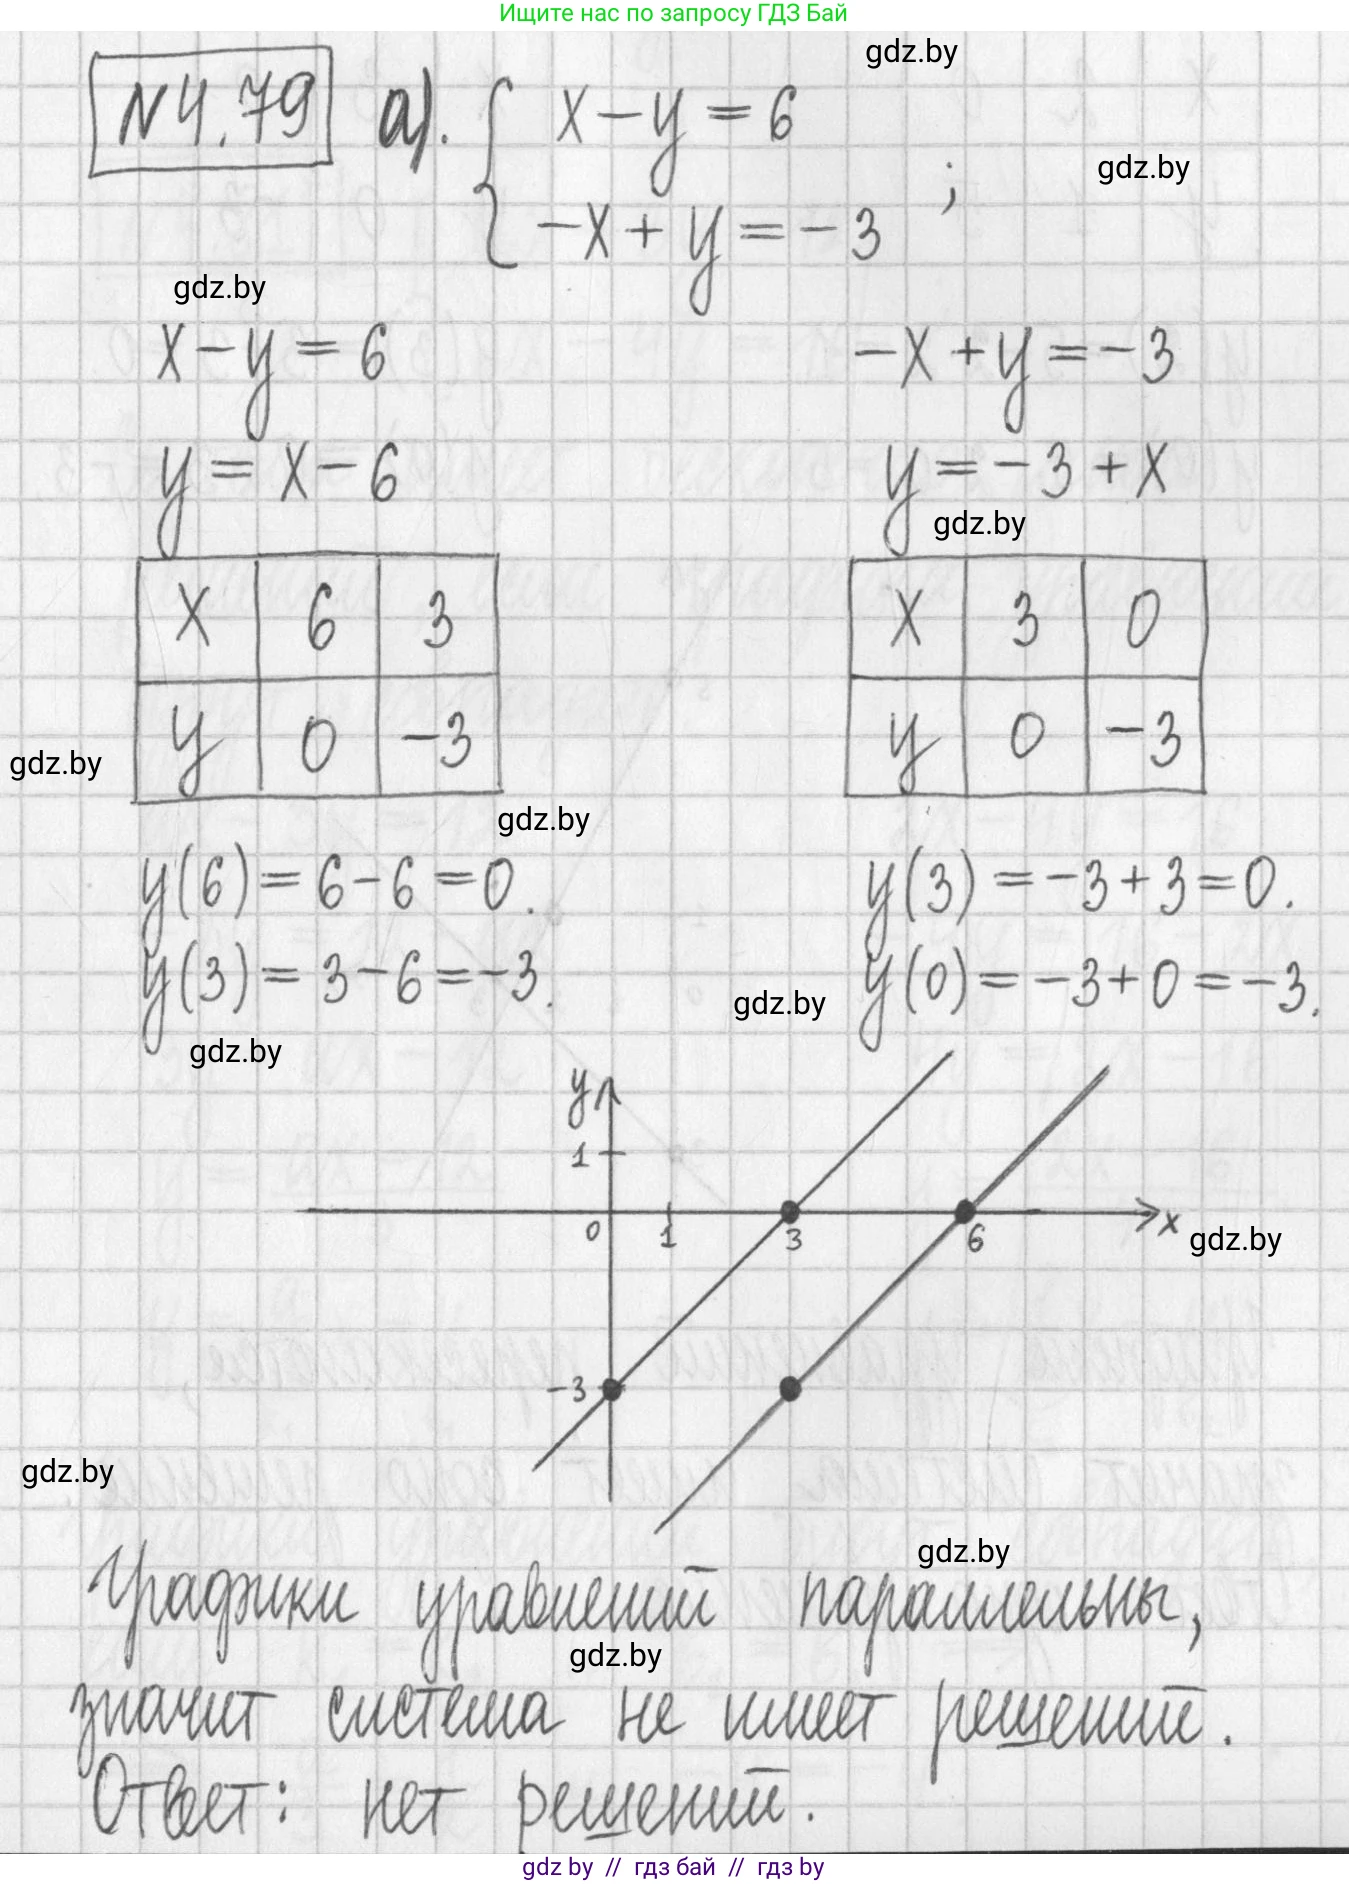 Ищите нас по запросу ГДЗ Бай
gdz.by
№4.79 а). { x-y=6
gdz.by
-x+y=-3 ;
gdz.by
x-y=6 -x+y=-3
y=x-6 y=-3+x
gdz.by
x 6 3 x 3 0
y 0 -3 y 0 -3
gdz.by
gdz.by
y(6)=6-6=0. y(3)=-3+3=0.
y(3)=3-6=-3. y(0)=-3+0=-3.
gdz.by
gdz.by
y
1
0 1 3 6 x
gdz.by
-3
gdz.by
gdz.by
Графики уравнений параллельны,
gdz.by
значит система не имеет решений.
Ответ: нет решений.
gdz by // гдз бай // гдз by